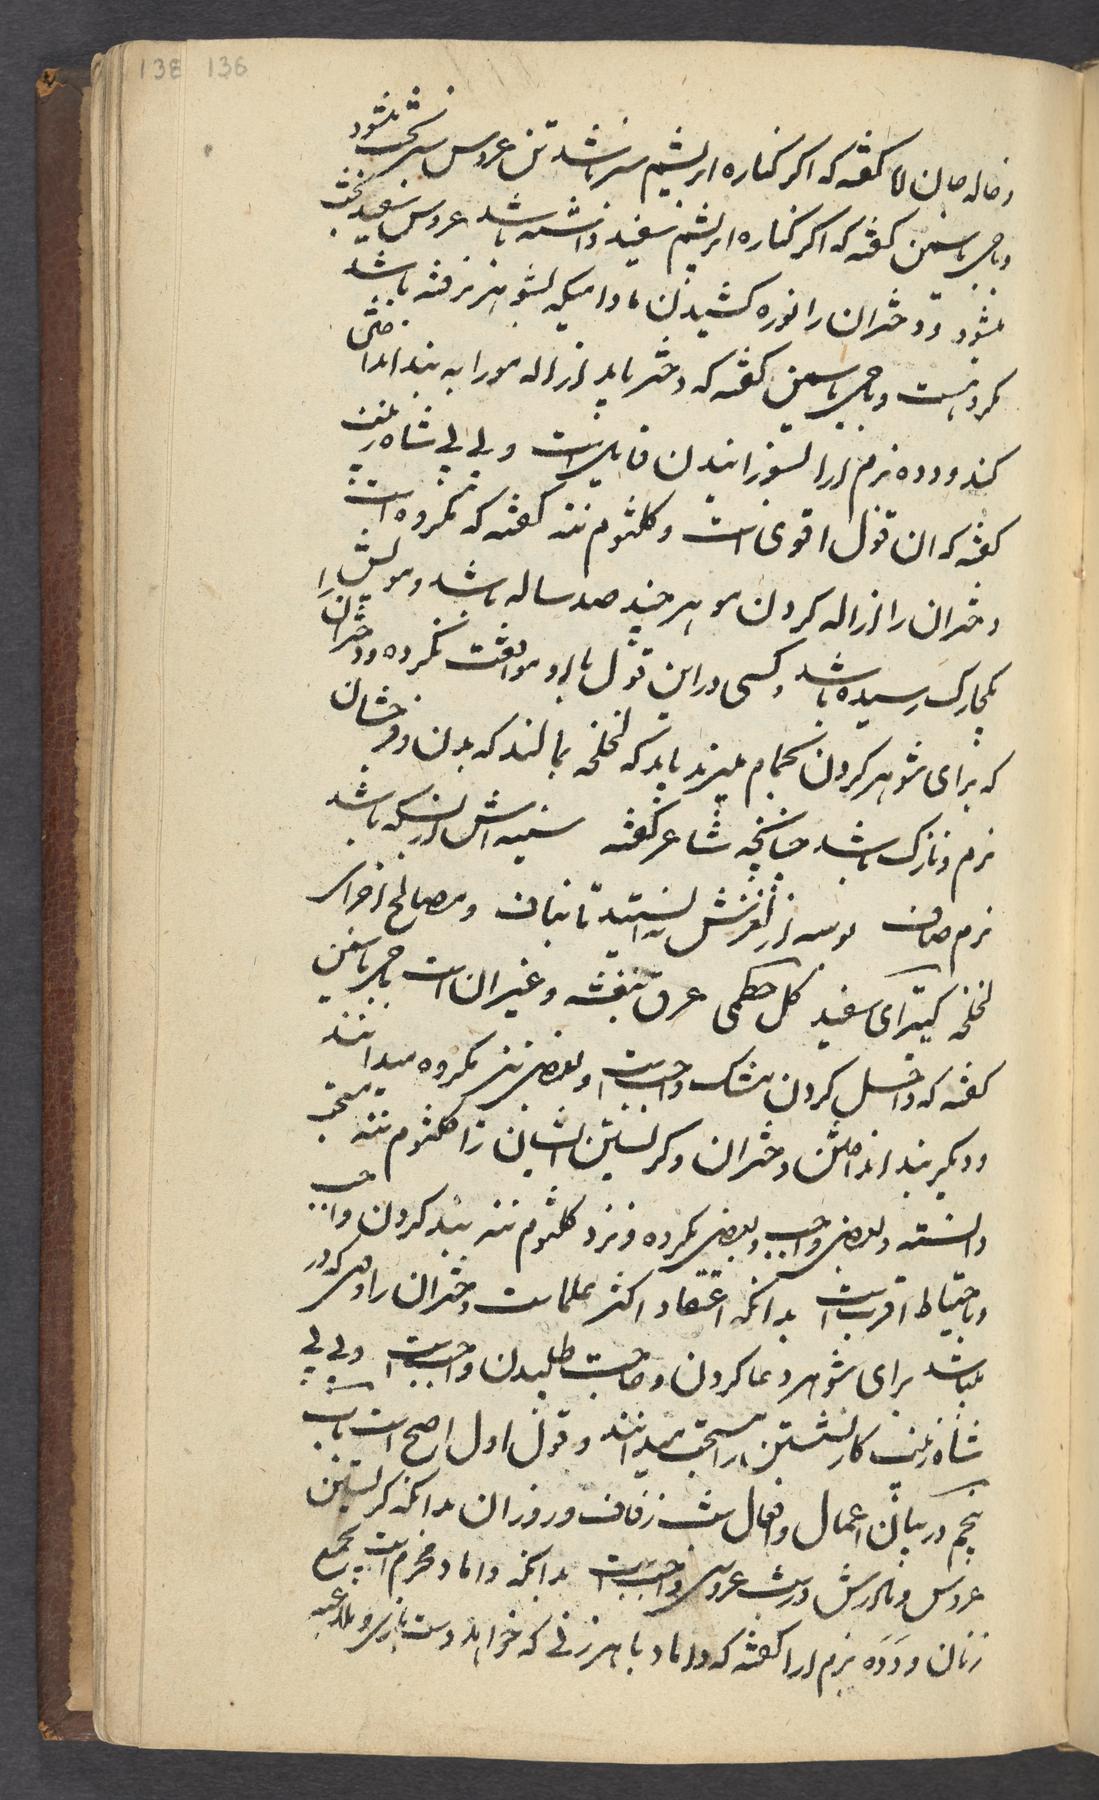 138 136
و خاله جان اقا گفته که اگر کناره ابریشم سبز باشد تن عروس سبز بخت بشود
و باجی یاسمن گفته که اگر کناره ابریشم سفید داشته باشد عروس سفید بخت
بشود و دختران را نوره کشیدن مادامیکه بشوهر نرفته باشد
مکروهست و باجی یاسمن گفته که دختر باید ازاله مو را به بند انداختن
کند و دده بزم ارا بسوزانیدن قایل است و بی بی شاه زینب
گفته که این قول اقوی است و کلثوم ننه گفته که مکروه است
دختران را ازاله کردن مو هر چند صد ساله باشد و مویش
بکارک رسیده باشد و کسی در این قول با او موافقت نکرده و دختران را
که برای شوهر کردن بحمام میبرند باید که لخلخه بمالند که بدن و
نرم و نازک باشد چنانچه شاعر گفته سینه اش از بسکه باشد
نرم صاف بوسه از لغزش نه استد تا بناف و مصالح اجزای
لخلخه کتیرای سفید گل خطمی عرق بنفشه و غیر ان است باجی یاسمن
گفته که داخل کردن مشک واجبست و بعضی نیز مکروه میدانند
و دیگر بند انداختن دختران و گریستن ایشان را کلثوم ننه مستحب
دانسته و بعضی واجب و بعضی مکروه و نزد کلثوم ننه بند کردن واجب
و باحتیاط اقرب است بدانکه اعتقاد اکثر علماست دختران را وقتی که در
میباشد برای شوهر دعا کردن و حاجت طلبیدن واجبست و بی بی
شاه زینب کار نشستن را مستحب میدانند و قول اول اصح است باب
پنجم در بیان اعمال و افعال شب زفاف و روز ان بدانکه گریستن
عروس و مادرش در شب عروسی واجبست بدانکه داماد محرم است بجمیع
زنان و دده بزم ارا گفته که داماد با هر زنی که خواهد دست بازی و ملاعبه